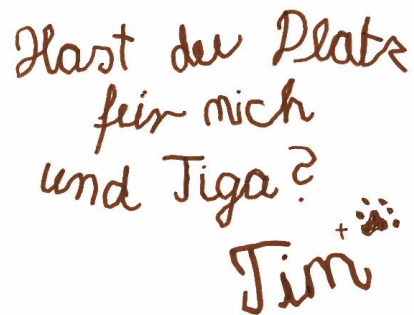 Hast du Platz
für mich
und Tiga?
+
Tim